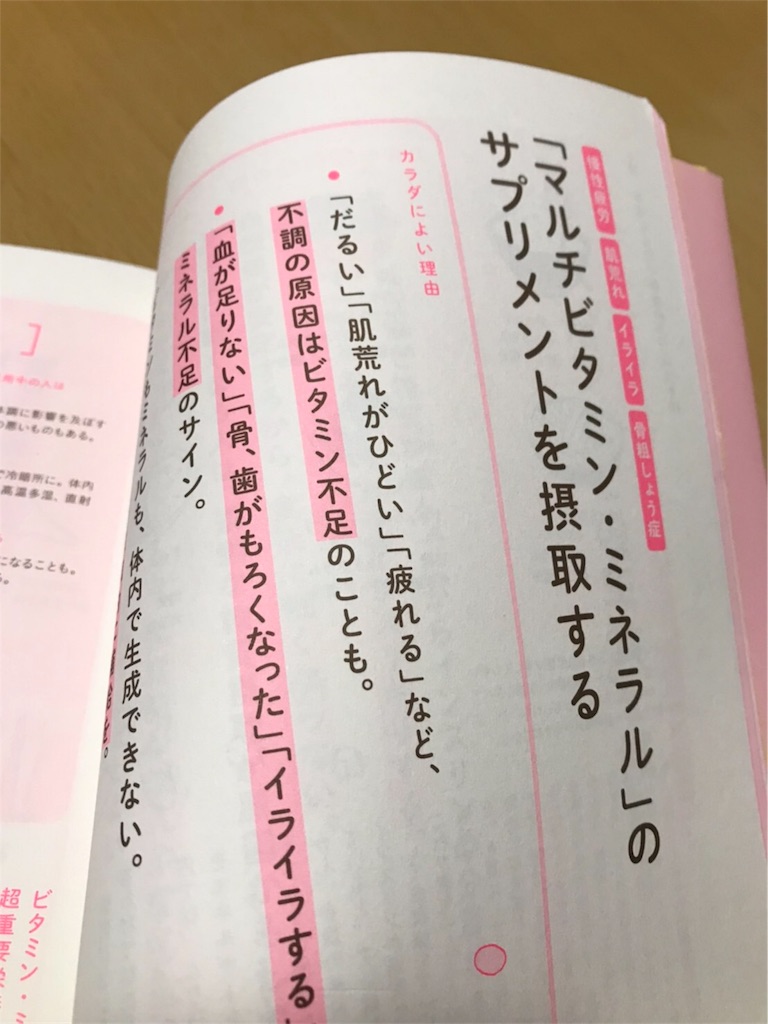 慢性疲労
肌荒れ
イライラ
骨粗しょう症
「マルチビタミン・ミネラル」の
サプリメントを摂取する
カラダによい理由
「だるい」「肌荒れがひどい」「疲れる」など、
不調の原因はビタミン不足のことも。
「血が足りない」「骨、歯がもろくなった」「イライラする」
ミネラル不足のサイン。
ミネラルも、体内で生成できない。
の人は
体調に影響を及ぼす
の悪いものもある。
で冷暗所に。体内
高温多湿、直射
になることも。
ビタミン・ミ
超重要栄